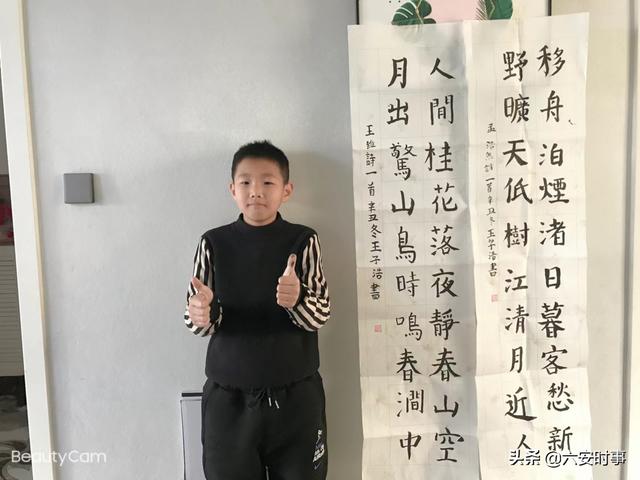 移舟泊煙渚日暮客愁新
野曠天低樹江清月近人
孟浩然詩一首辛丑冬王子浩書
人間桂花落夜靜春山空
月出驚山鳥時鳴春澗中
王維詩一首辛丑冬王子浩書
BeautyCam
头条 @六安时事